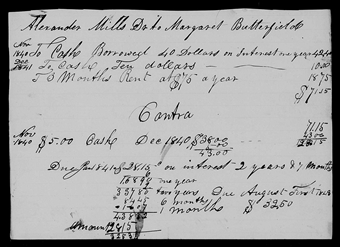 Alexander Mills Dr to Margaret Butterfield
Nov 1840 To Cash Borrowed 40 Dollars on Interest one year 42.40
Dec 1841 To Cash Ten dollars 10.00
To 3 Months Rent at $75 a year 18.75
$71.15
Contra
71.15
Nov 1840 $5.00 Cash Dec 1840 $38.00 43.00
43.00 28.15
Due 1841 $28.15 on interest 2 years & 7 months
one year
two years Due August First 1843
6 months $32.50
1 months
Amount 28.15